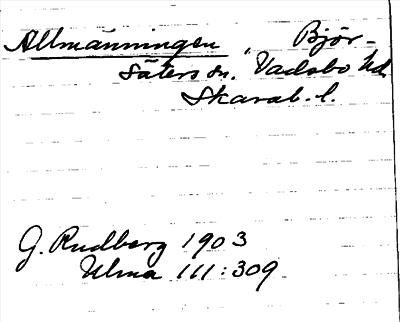 Allmänningen, Björ-
säters sn, Vadsbo hd,
Skarab. l.
G. Rudberg 1903
Ulma 111:309